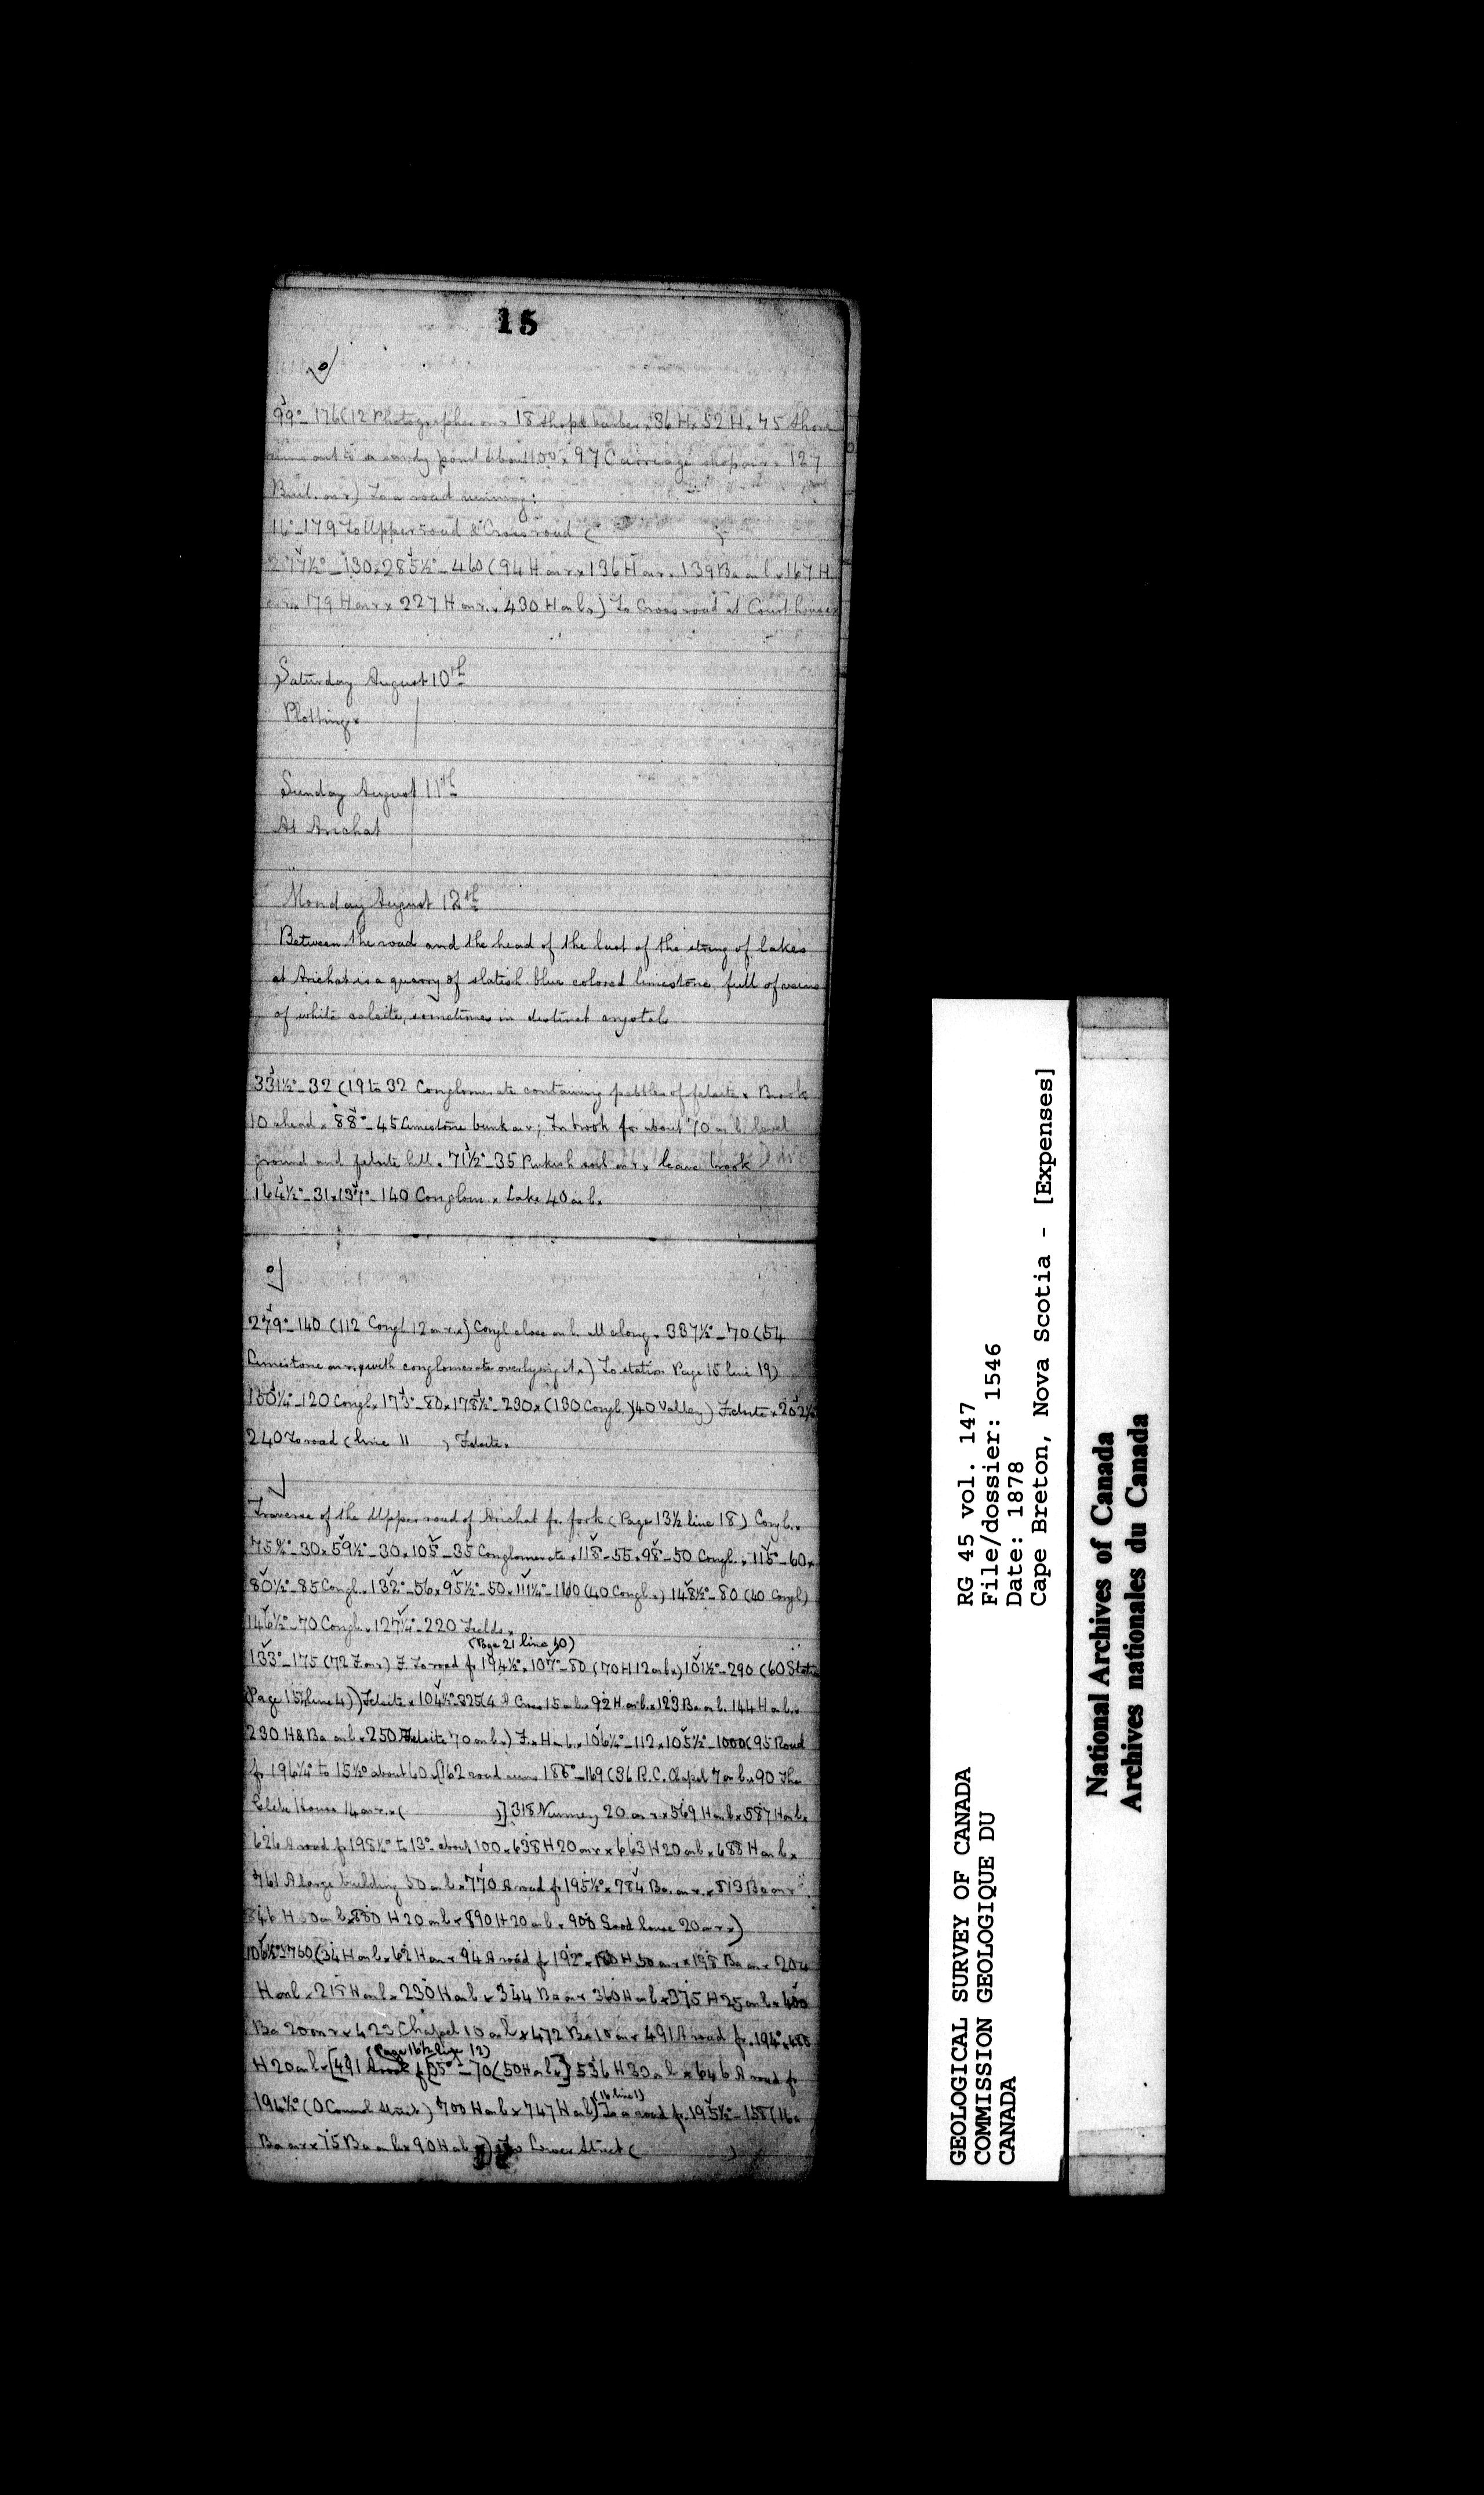 15
99°_176 (12 Photographer on r 18 shop & barber x 36 H x 52 H x 75 Shore
out to a sandy pond about 100 x 97 Carriage shop on r x 127
Buil. on r) To a road running:
16°_179 To Upper road & Cross road (
277½°_130 x 285½°_460 (94 H on r x 136 H on r x 139 Ba on l x 167 H
on r x 179 H on r x 227 H on r x 430 H on l x) To Cross road at Court house x
Saturday August 10th
Plotting x
Sunday August 11th
At Arichat
Monday August 12th
Between the road and the head of the last of the string of lakes
at Arichat is a quarry of slatish blue colored limestone, full of veins
of white calcite, sometimes in distinct crystals
331½°_32 (19 to 32 Conglomerate containing pebbles of felsite x Brook
10 ahead x 88°_45 Limestone bank on r; In brook for about 70 on l level
ground and felsite hill x 71½°_35 Pinkish soil on r x leave brook
164½°_31 x 137°_140 Conglom x Lake 40 on l x
279°_140 (112 Congl 12 on r x) Congl close on l all along x 337½°_70 (54
Limestone on r with conglomerate overlying it x) To station Page 15 line 19)
150¼°_120 Congl x 173°_80 x 178½°_230 x (130 Congl.) 40 Valley) Felsite x 202½°
240 To road (line 11 ) Felsite x
Traverse of the Upper road of Arichat fr. fork (Page 13½ line 18) Congl x
75¾°_30 x 59½°_30 x 105°_35 Conglomerate x 118°_55 x 98°_50 Congl. x 115°_60 x
80½°_85 Congl x 132°_56 x 95½°_50 x 111¼°_160 (40 Congl x) 148½°_80 (40 Congl)
146½°_70 Congl x 127¼°_220 Fields x
(Page 21 line 10)
133°_175 (72 F on r) F. To road fr 194½° x 107°_80 (70 H 12 on l x) 101½°_290 (60 Station
(Page 15½ line 4)) Felsite x 104½°_325 (4 A Cross 15 on l x 92 H on l x 123 Ba on l. 144 H on l x
230 H & Ba on l x 250 Felsite 70 on l x) F x H on l x 106¼°_112 x 105½°_1000 (95 Road
fr 196¼° to 15½° about 60 x [162 road runs 186°_169 (36 R.C. Chapel 7 on l x 90 The
Glebe House 14 on r x ( )] 318 Nunnery 20 on r x 569 H on l x 587 H on l x
626 A road fr 198½° to 13° about 100 x 638 H 20 on r x 663 H 20 on l x 688 H on l x
761 A large building 50 on l x 770 A road fr 195½° x 784 Ba. on r x 813 Ba on r
846 H 50 on l x 880 H 20 on l x 890 H 20 on l x 900 Good house 20 on r x)
106½°_760 (34 H on l x 62 H on r 94 A road fr 192° x 180 H 50 on r x 198 Ba on r 204
H on l x 215 H on l x 230 H on l x 344 Ba on r 360 H on l x 375 H 25 on l x 400
Ba 20 on r x 423 Chapel 10 on l x 472 Ba 10 on r 491 A road fr. 194° x 488
(Page 16½ line 12)
H 20 on l x [491 fr [35°_70 (50 H on l x] 536 H 30 on l x 646 A road fr
(16 line 1)
194½° (O Connel Street) 700 H on l x 747 H on l) To a road fr. 195½°_158 (16
Ba on r x 75 Ba on l x 90 H on l x) To Lower Street ( )
GEOLOGICAL SURVEY OF CANADA
COMMISSION GEOLOGIQUE DU
CANADA
RG 45 vol. 147
File/dossier: 1546
Date: 1878
Cape Breton, Nova Scotia - [Expenses]
National Archives of Canada
Archives nationales du Canada